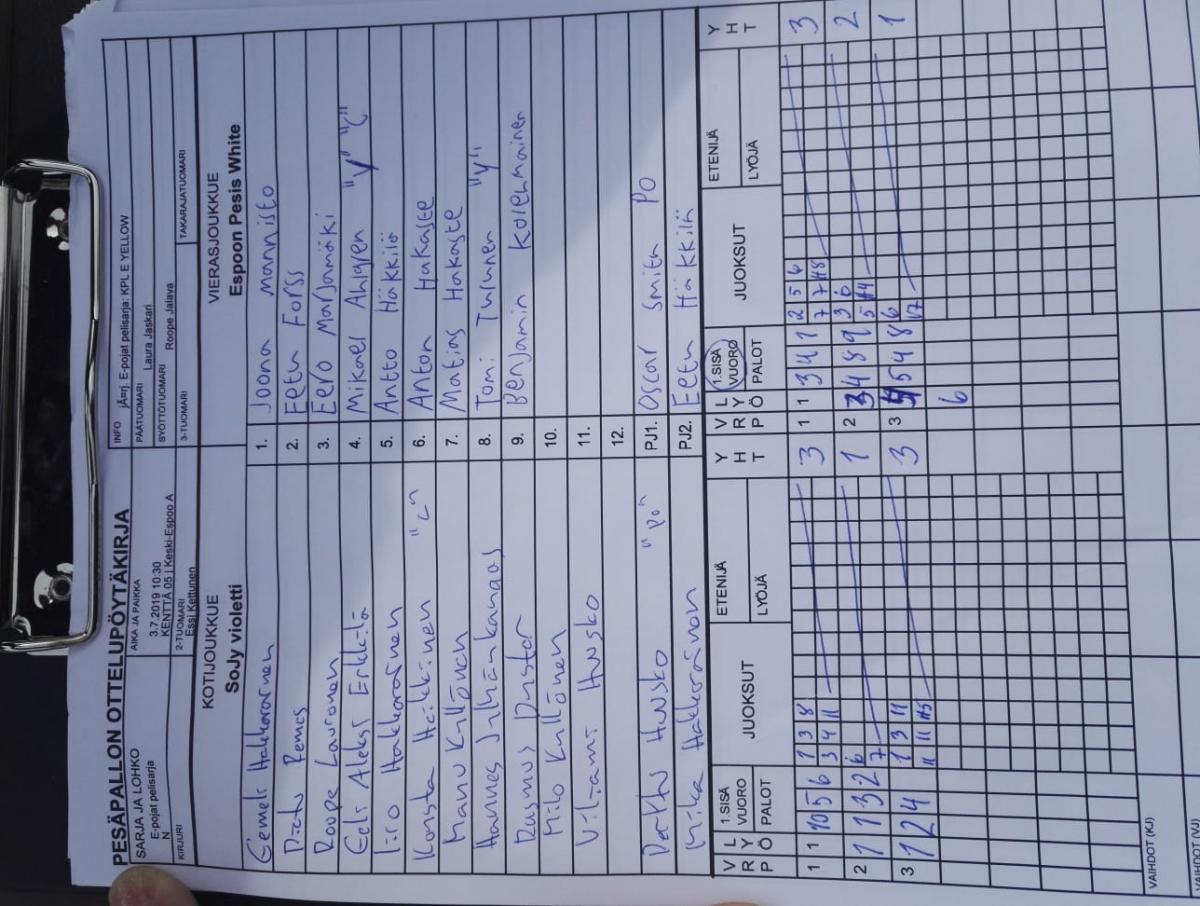 PESÄPALLON OTTELUPÖYTÄKIRJA
SARJA JA LOHKO
E-pojat pelisarja
N
AIKA JA PAIKKA
3.7.2019 10:30
KENTTÄ 05 | Keski-Espoo A
INFO jÄ¤rj. E-pojat pelisarja: KPL E YELLOW
PÄÄTUOMARI Laura Jaskari
SYÖTTÖTUOMARI Roope Jalava
KIRJURI
2-TUOMARI
Essi Kettunen
3-TUOMARI
TAKARAJATUOMARI
KOTIJOUKKUE
SoJy violetti
VIERASJOUKKUE
Espoon Pesis White
Eemeli Hakkarainen 1. Joona Mannistö
Remes 2. Eetu Forss
Roope Lauronen 3. Eero Marjamäki
Eeli Aleksi Erkkilä 4. Mikael Ahlgren "V" "C"
Iiro Hakkarainen 5. Antto Häkkilä
Konsta Heikkinen "C" 6. Anton Hakaste
Manu Kyllönen 7. Matias Hakaste
Hannes Juhänkangas 8. Tomi Turunen "V"
Rasmus 9. Benjamin Kolehmainen
Milo Kyllönen 10.
Viljami Huusko 11.
12.
Huusko "PO" PJ1. Oscar Smith PO
Mika Hakkarainen PJ2. Eetu Häkkilä
VRP LYÖ 1.SISÄVUORO PALOT JUOKSUT ETENIJÄ LYÖJÄ YHT VRP LYÖ 1.SISÄVUORO PALOT JUOKSUT ETENIJÄ LYÖJÄ YHT
1 1 10 5 6 1 3 8 3 1 1 3 4 1 2 5 6 3
3 4 11 7 7 #8
2 1 1 3 2 6 1 2 3 4 8 9 3 6 2
7 5 #4
3 1 2 4 1 3 11 3 3 5 4 8 6 1
11 11 #5 17
6
VAIHDOT (KJ)
VAIHDOT (VJ)